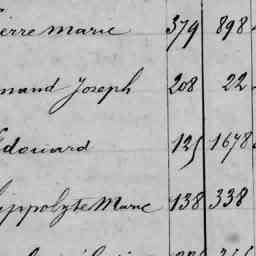 ierre Marie 379 898
mand Joseph 208 22
Edouard 125 1678
ippolyte Marie 138 338